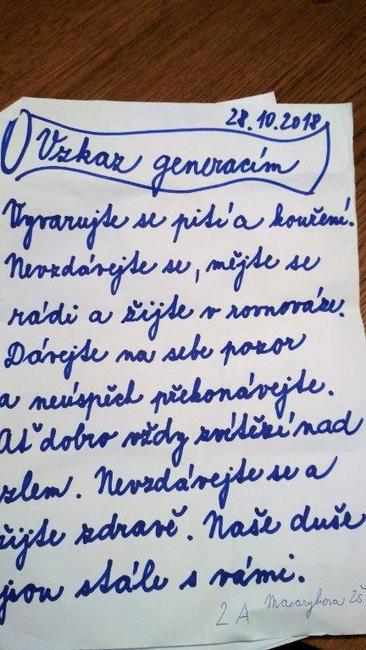 28.10.2018
Vzkaz generacím
Vyvarujte se pití a kouření.
Nevzdávejte se, mějte se
rádi a žijte v rovnováze.
Dávejte na sebe pozor
a neúspěch překonávejte.
Ať dobro vždy zvítězí nad
zlem. Nevzdávejte se a
žijte zdravě. Naše duše
jsou stále s vámi.
2A Masarykova ZŠ